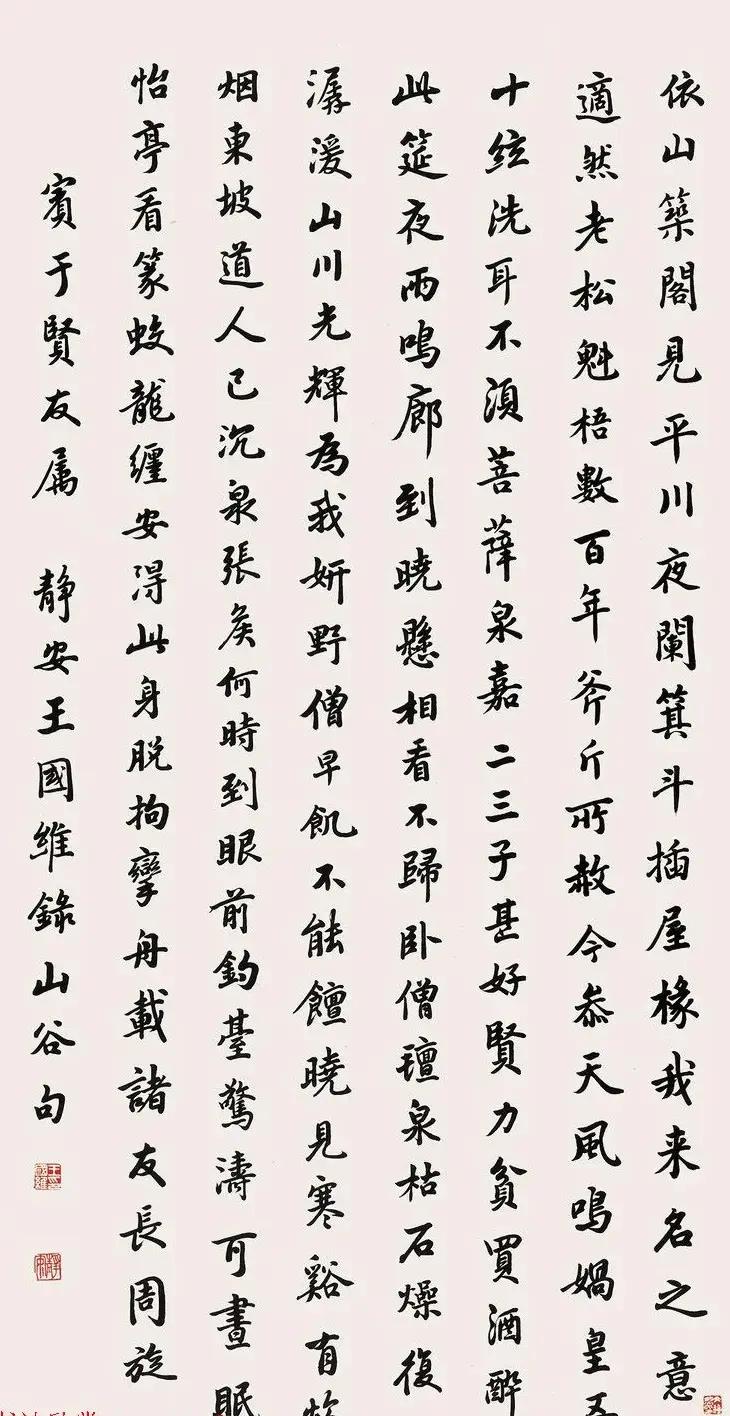 依山築閣見平川夜闌箕斗插屋椽我来名之意
適然老松魁梧數百年斧斤所赦今叅天風鳴媧皇五
十絃洗耳不須菩薩泉嘉二三子甚好賢力貧買酒醉
此筵夜雨鳴廊到曉懸相看不歸卧僧璮泉枯石燥復
潺湲山川光輝為我妍野僧早飢不能饘曉見寒谿有炊
烟東坡道人已沉泉張矦何時到眼前釣臺驚濤可晝眠
怡亭看篆蛟龍纏安得此身脱拘攣舟載諸友長周旋
賓于賢友属 静安王國維錄山谷句
王國維印
靜安